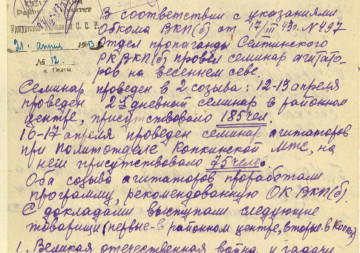 В соответствии с указаниями
Обкома ВКП(б) от 17/III 43г. № 297
Отдел пропаганды Селтинского
РК ВКП(б) провел семинар агитато-
ров на весеннем севе.
21 апреля 1943
№ 12
Семинар проведен в 2 созыва: 12-13 апреля
проведен 2х дневный семинар в районном
центре, присутствовало 185 чел
16-17 апреля проведен семинар агитаторов
при политотделе Копкинской МТС, на
нем присутствовало 75 чел.
Оба созыва агитаторов проработали
программу, рекомендованную ОК ВКП(б).
С докладами выступали следующие
товарищи (первые в районном центре, вторые в Копке)
1. Великая отечественная война и задачи